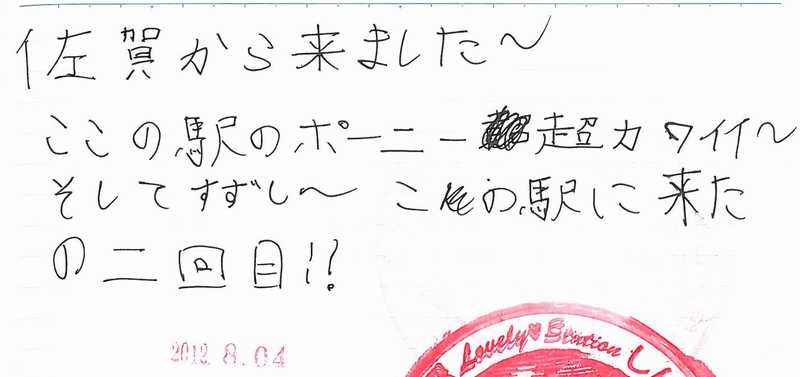 佐賀から来ました〜
ここの駅のポーニー超カワイイ〜
そしてすずし〜 この駅に来た
の二回目!!
2012. 8. 04
Lovely♥Station し